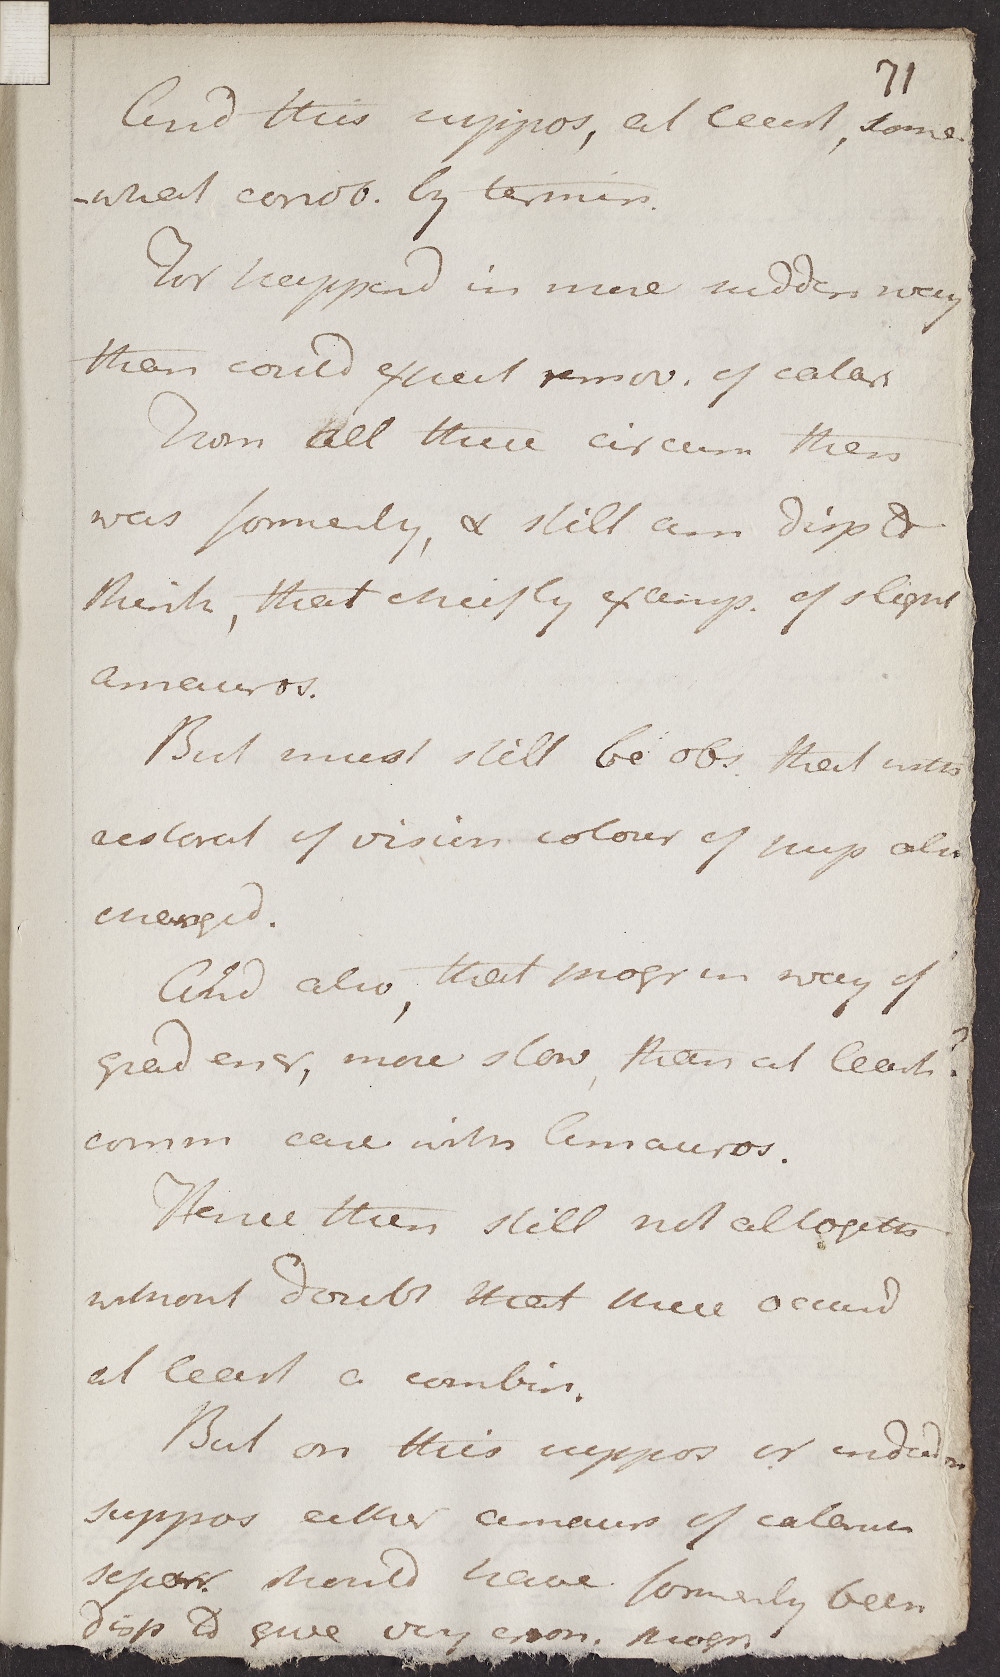 71
And this suppos, at least, some
-what corrob. by termin.
For happend in more sudden way
than could expect remov. of catar
From all these circum then
was formerly, & still am disp to
think, that chiefly examp. of slight
amauros.
But must still be obs. that with
restorat of vision colour of pup also
changed.
And also, that progr in way of
grad encr, more slow, than at least
comm case with Amauros.
Hence then still not altogeth
without doubt that these occurd
at least a combin.
But on this suppos or indeed on
suppos either amauros of catarac
separ. should have formerly been
disp to give very erron. progn